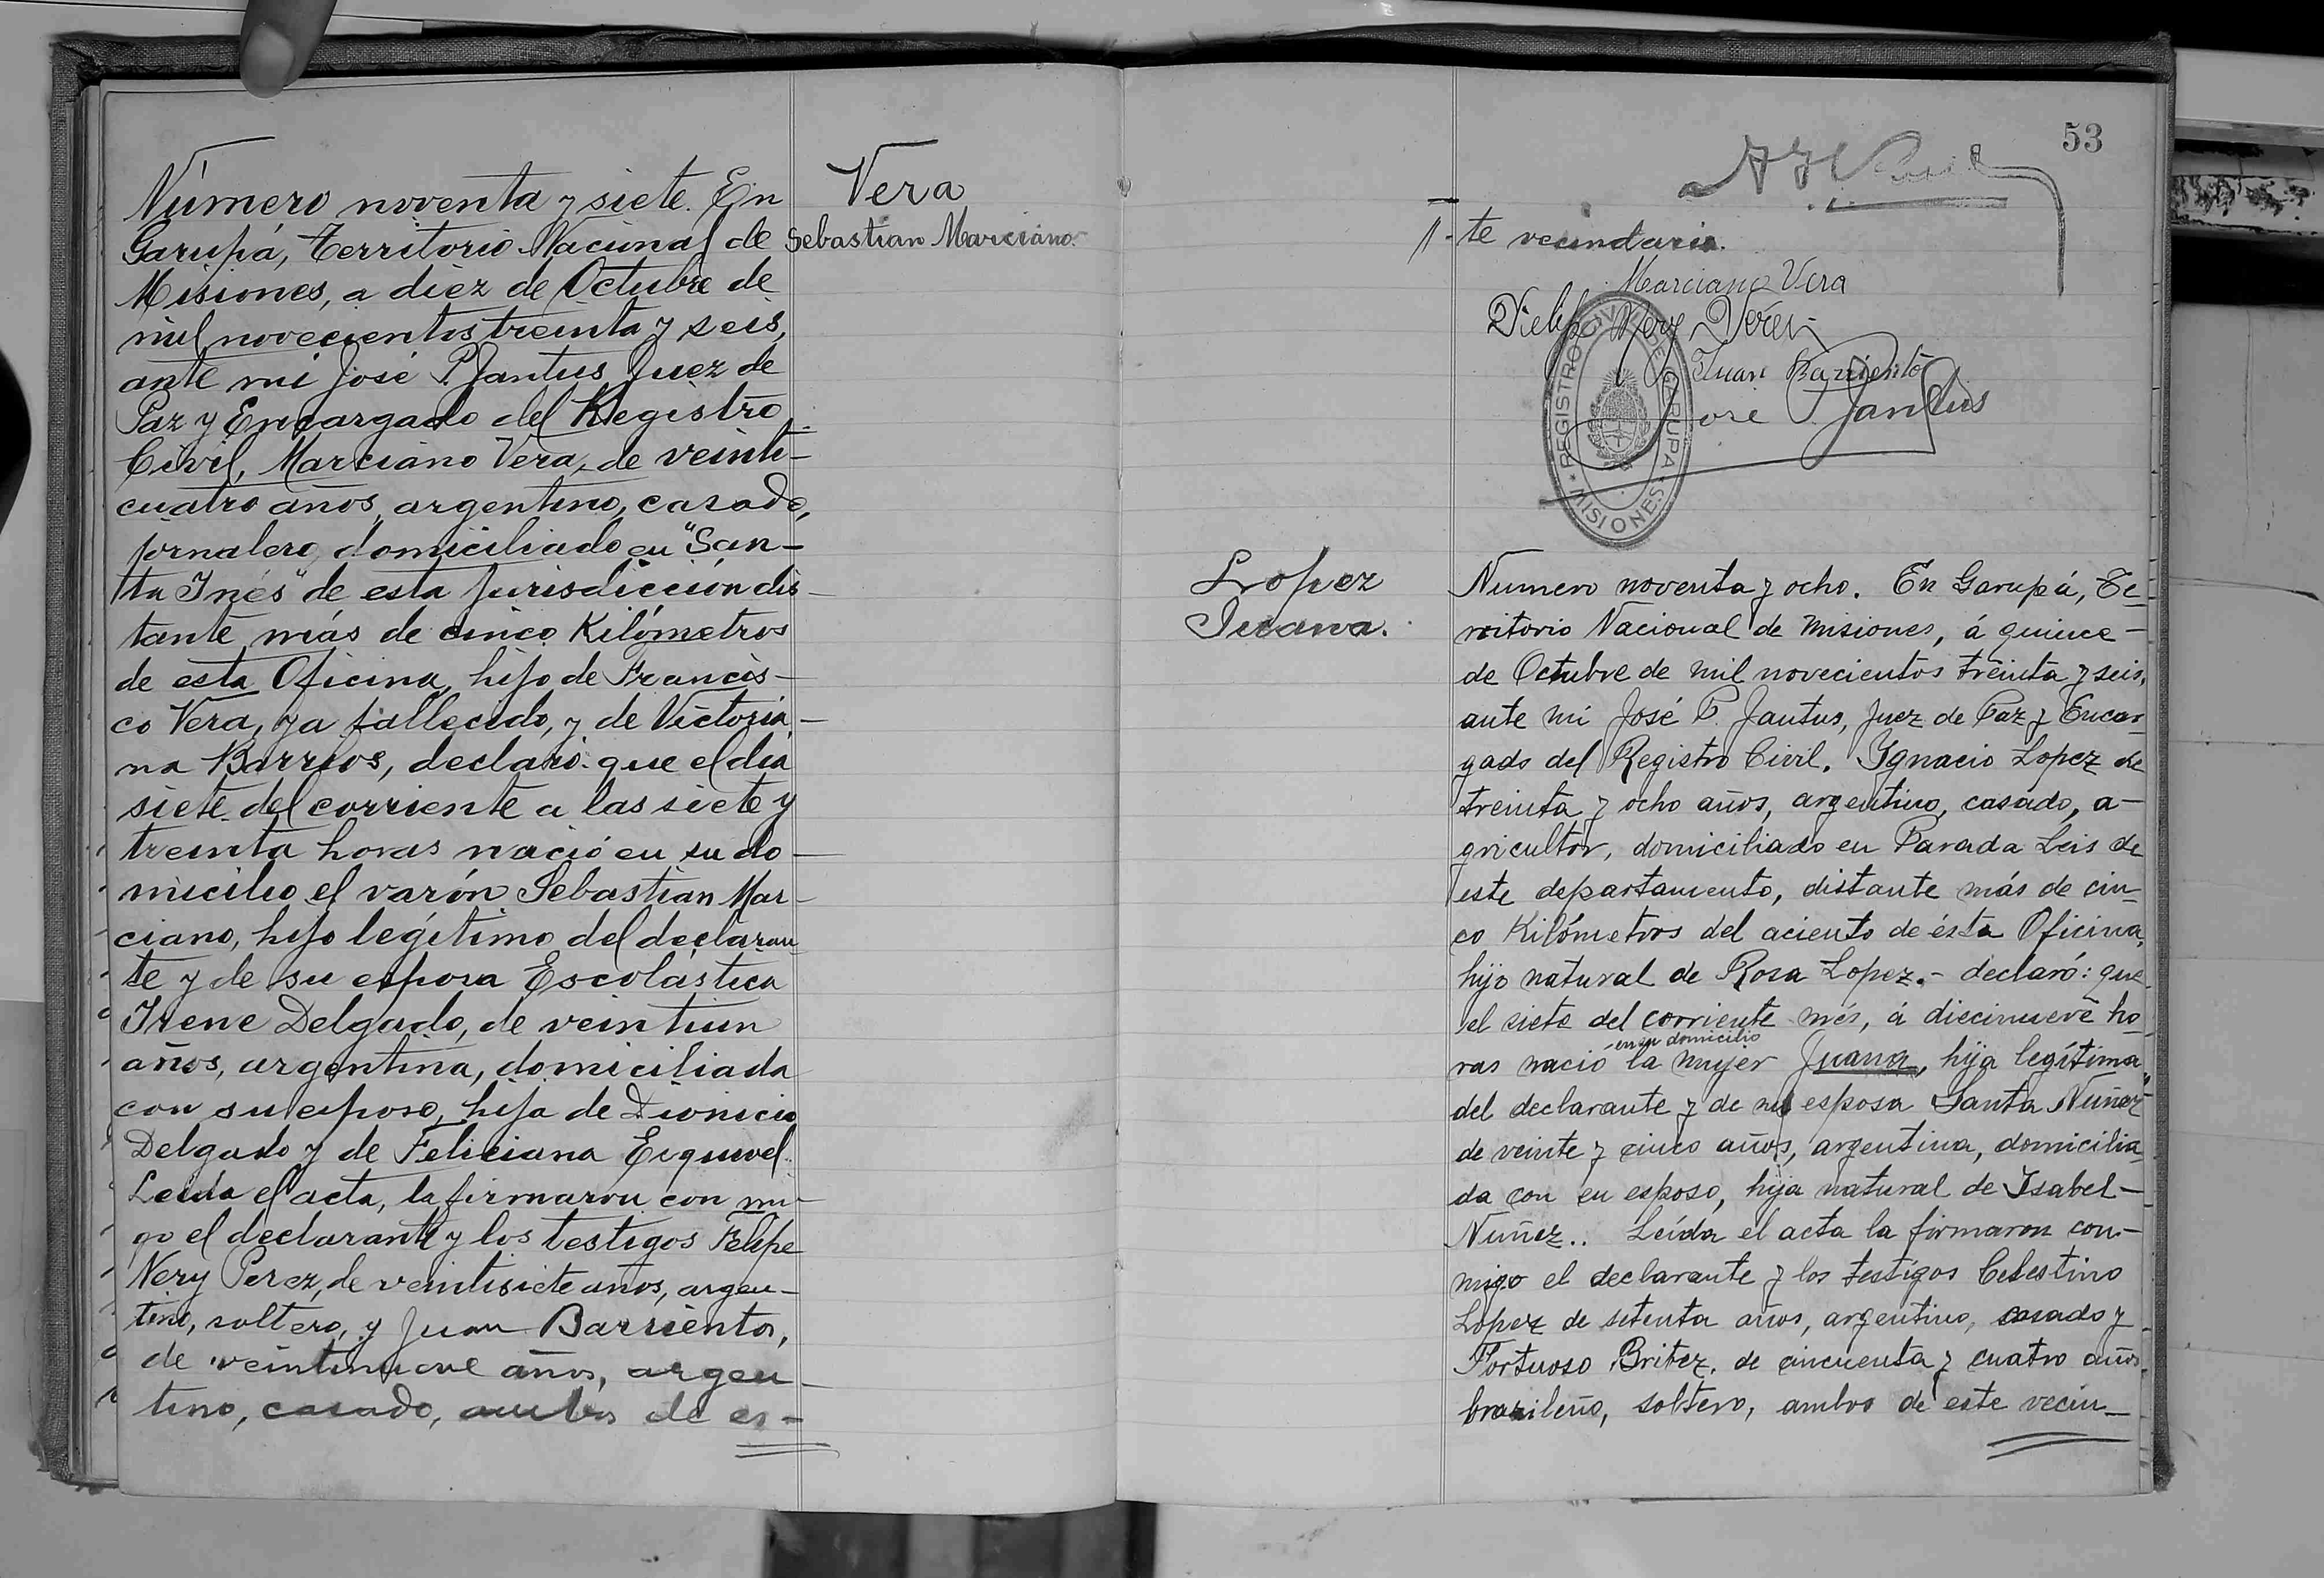 Vera
Sebastian Marciano.
Número noventa y siete. En
Garupá, Territorio Nacional de
Misiones, a diez de Octubre de
mil novecientos treinta y seis,
ante mi José P. Jantus Juez de
Paz y Encargado del Registro
Civil, Marciano Vera, de veinti-
cuatro años, argentino, casado,
jornalero, domiciliado en "San-
ta Inés" de esta jurisdicción dis-
tante más de cinco Kilómetros
de esta Oficina, hijo de Francis-
co Vera, ya fallecido, y de Victoria-
na Barrios, declaró: que el dia
siete del corriente a las siete y
treinta horas nació en su do-
micilio el varón Sebastian Mar-
ciano, hijo legítimo del declaran-
te y de su esposa Escolástica
Irene Delgado, de veintiun
años, argentina, domiciliada
con su esposo, hija de Dionicio
Delgado y de Feliciana Esquivel.
Leida el acta, la firmaron con mi-
go el declarante y los testigos Felipe
Nery Perez, de veintisiete años, argen-
tino, soltero, y Juan Barrientos,
de veintinueve años, argen-
tino, casado, ambos de es-
53
te vecindario.
Marciano Vera
Juan Barrientos
José P. Jantus
REGISTRO CIVIL DE GARUPA
MISIONES
López
Juana.
Numero noventa y ocho. En Garupá, Te-
rritorio Nacional de Misiones, á quince
de Octubre de mil novecientos treinta y seis,
ante mi José P. Jantus, Juez de Paz y Encar-
gado del Registro Civil. Ignacio Lopez de
treinta y ocho años, argentino, casado, a-
gricultor, domiciliado en Parada Leis de
este departamento, distante más de cin-
co Kilómetros del aciento de ésta Oficina,
hijo natural de Rosa Lopez.- declaró: que
el siete del corriente més, á diecinueve ho-
en su domicilio
ras nació la mujer Juana, hija legítima
del declarante y de su esposa Santa Nuñez
de veinte y cinco años, argentina, domicilia-
da con su esposo, hija natural de Isabel-
Nuñez.. Leída el acta la firmaron con-
migo el declarante y los testigos Celestino
Lopez de setenta años, argentino, casado y
Fortuoso Britez. de cincuenta y cuatro años
brasileño, soltero, ambos de este vecin-